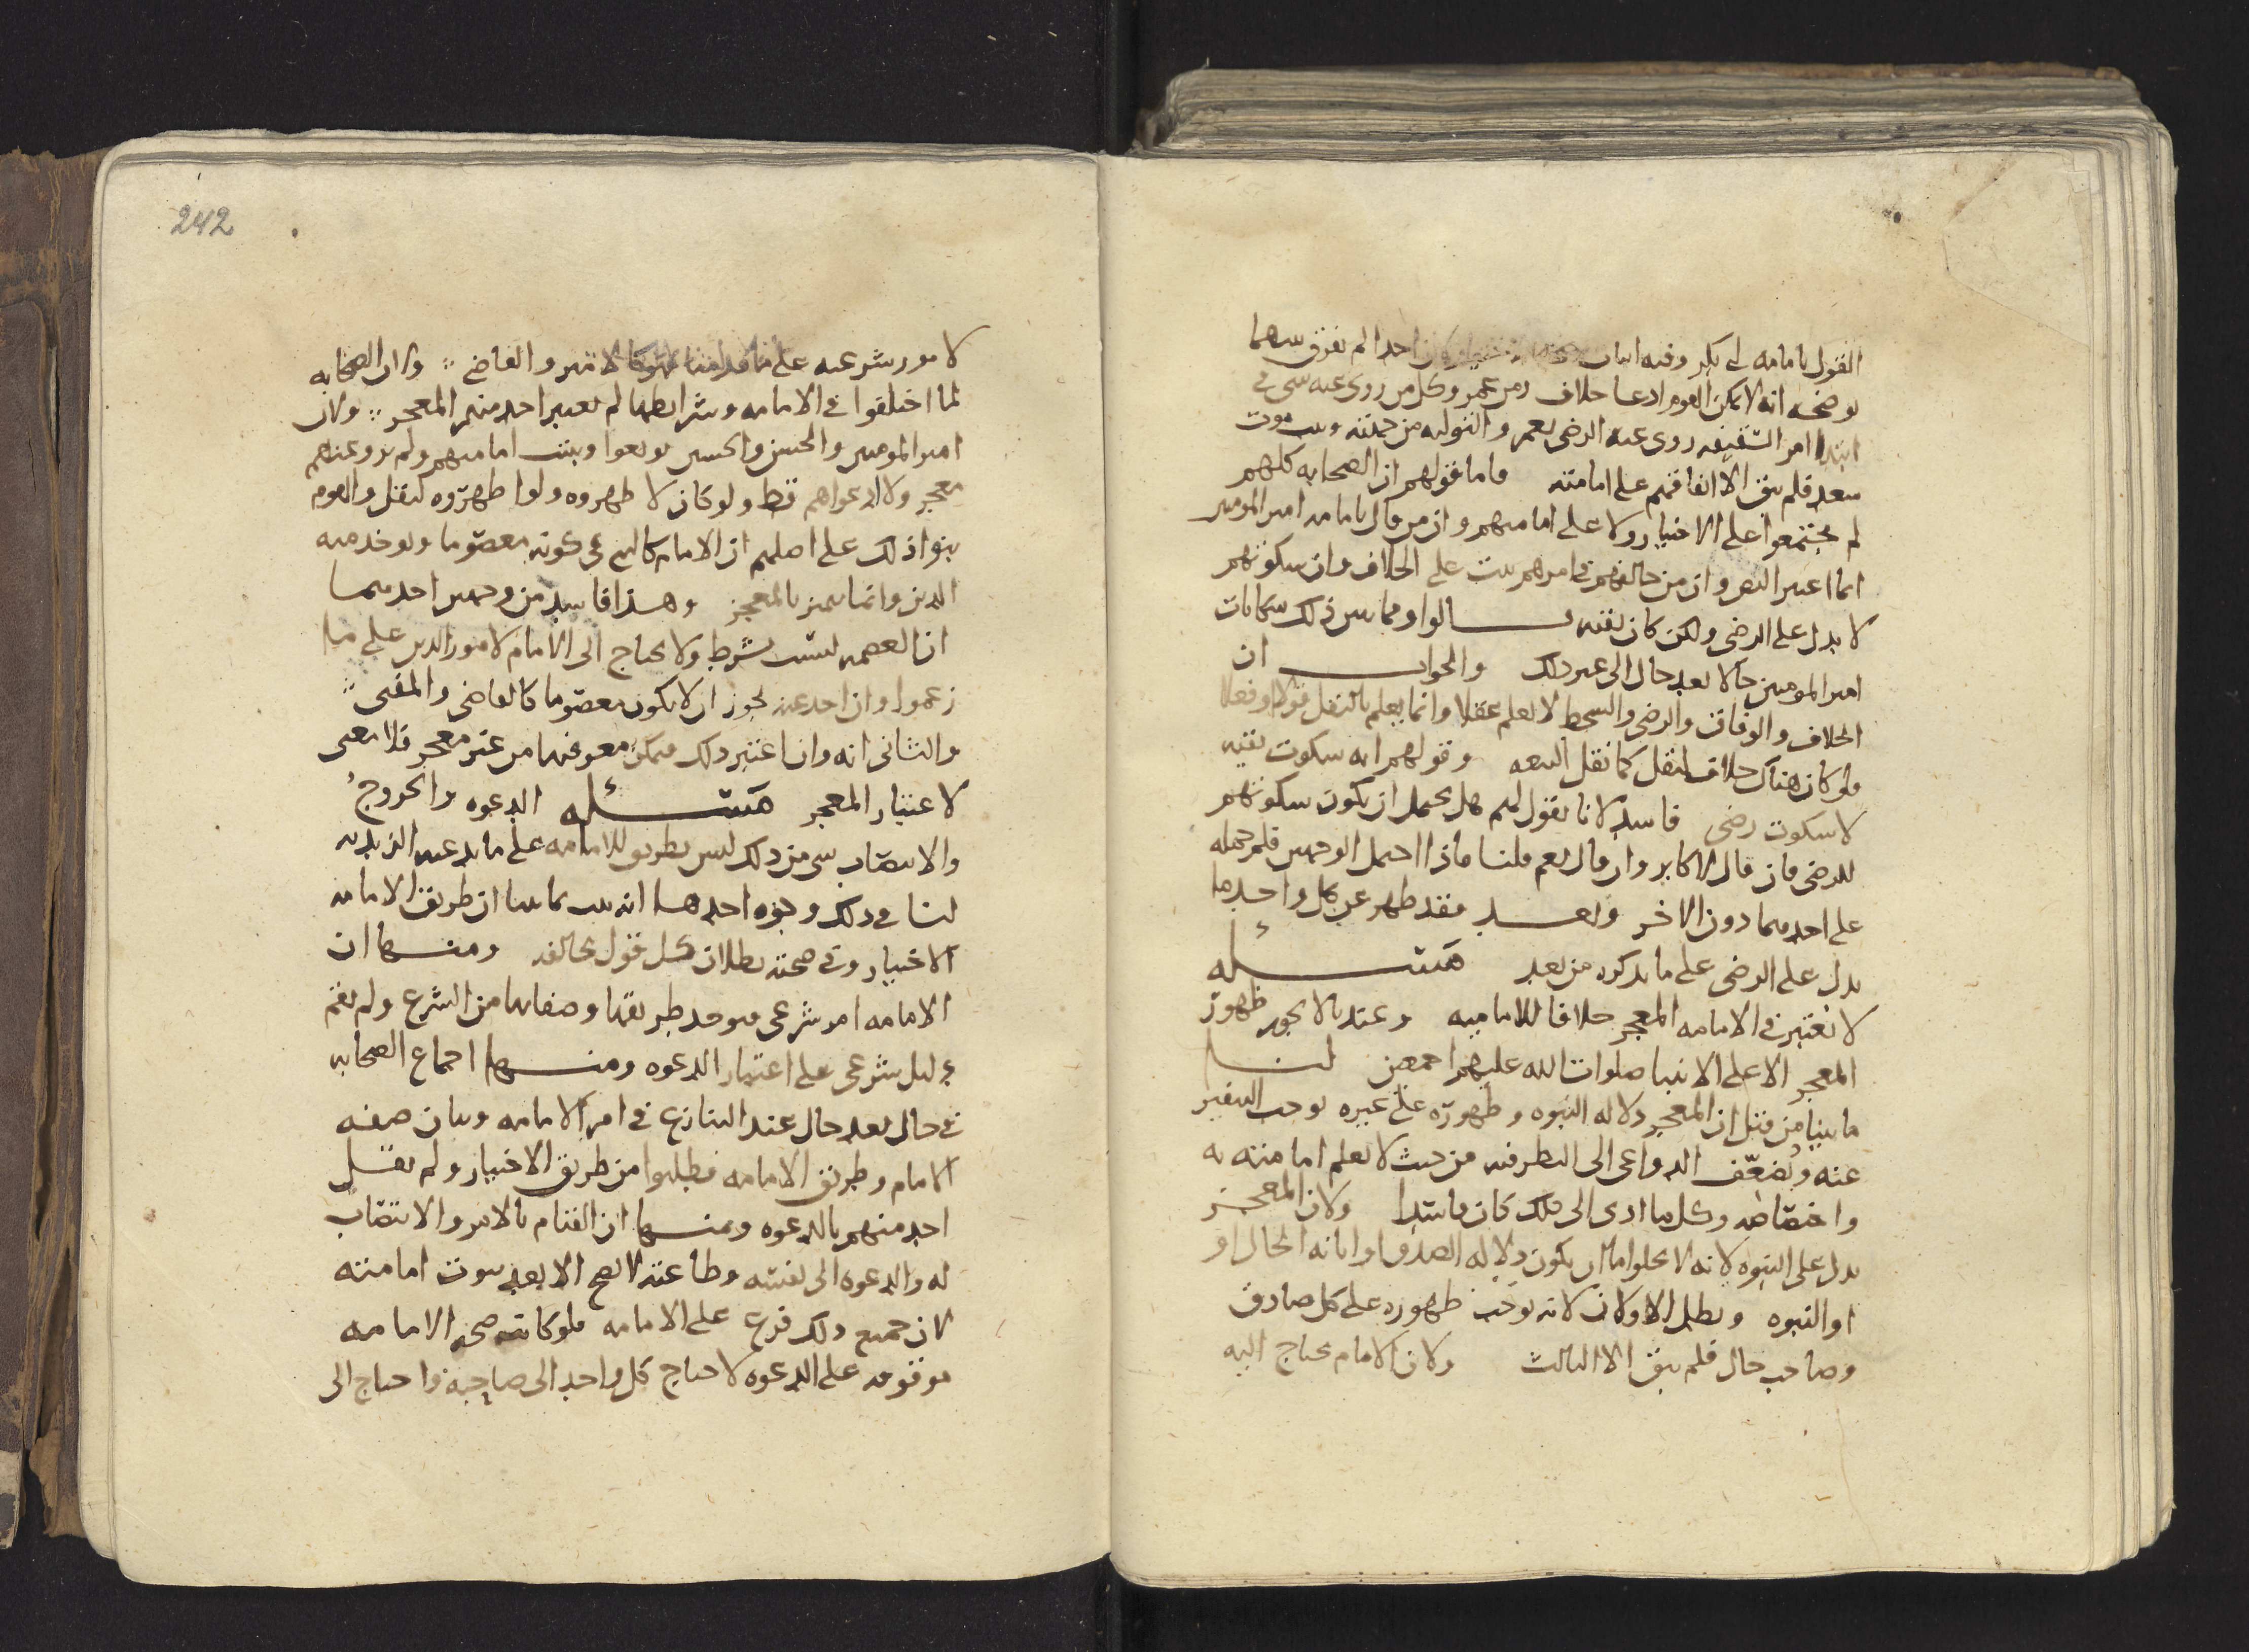 القول بامامه ابى بكر وفيه اثبات احد لم يفرق بينهما
يوضحه انه لا يمكن القوم ادعا خلاف ومن عمر وكل من روى عنه شى فى
ابتدا امر السقيفه روى عنه الرضى بعمر والتوليه من جهته وبموت
سعد فلم يبق الا اتفاقهم على امامته فاما قولهم ان الصحابه كلهم
لم يجتمعوا على الاختيار ولا على امامتهم وان من قال بامامه امير المومنين
انما اعتبر النص وان من خالفهم فى امرهم ثبت على الخلاف وان سكوتهم
لا يدل على الرضى ولكن كان تقيه قالوا ومما يبين ذلك شكايات
امير المومنين حالا بعد حال الى غير ذلك والجواب ان
الخلاف والوفاق والرضى والسخط لا يعلم عقلا وانما يعلم بالنقل قولا او فعلا
فلو كان هناك خلاف لنقل كما نقل البيعه وقولهم انه سكوت تقيه
لا سكوت رضى فاسد لانا نقول لهم هل يحتمل ان يكون سكوتهم
للرضى فان قال لا كابر وان قال نعم قلنا فاذا احتمل الوجهين فلم حمله
على احدهما دون الاخر وبعد فقد ظهر عن كل واحد ما
يدل على الرضى على ما نذكره من بعد مسئله
لا يعتبر فى الامامه المعجز خلافا للاماميه وعندنا لا يجوز ظهور
المعجز الا على الانبيا صلوات الله عليهم اجمعين لنا
ما بينا من قبل ان المعجز دلاله النبوه وظهوره على غيره يوجب التنفير
عنه ويضعّف الدواعى الى النظر فيه من حيث لا يعلم امامته به
واختصاصه وكل ما ادى الى ذلك كان فاسدا ولان المعجز
يدل على النبوه لانه لا يخلوا اما ان يكون دلاله الصدق او ابانه الحال او
او النبوه وبطل الاولان لانه يوجب ظهوره على كل صادق
وصاحب حال فلم يبق الا الثالث ولان الامام يحتاج اليه
لامور شرعيه على ما قدمنا كالامير والقاضى ولان الصحابه
لما اختلفوا فى الامامه وشرايطها لم يعتبر احد منهم المعجز ولان
امير المومنين والحسن والحسين بويعوا وثبتت امامتهم ولم يرو عنهم
معجز ولا ادعواهم قط ولو كان لاظهروه ولو اظهروه لنقل والقوم
بنوا ذلك على اصلهم ان الامام كالنبى فى كونه معصوما ويوخذ منه
الدين وانما يتميز بالمعجز وهذا فاسد من وجهين احدهما
ان العصمه ليست بشرط ولا يحتاج الى الامام لامور الدين على ما
زعموا وان احد عندنا يجوز ان لا يكون معصوما كالقاضى والمفتى
والثانى انه وان اعتبر ذلك فيمكن معرفتها من غير معجز فلا معنى
لاعتبار المعجز مسئله الدعوه والخروج
والانتصاب شى من ذلك ليس بطريق للامامه على ما يدعيه الزيديه
لنا فى ذلك وجوه احدها انه ثبت بما بينا ان طريق الامامه
الاختيار وفى صحته بطلان كل قول يخالفه ومنها ان
الامامه امر شرعى فيوخذ طريقها وصفاتها من الشرع ولم يقم
دليل شرعى على اعتبار الدعوه ومنها اجماع الصحابه
فى حال بعد حال عند التنازع فى امر الامامه وبيان صفه
الامام وطريق الامامه فطلبوا من طريق الاختيار ولم يقل
احد منهم بالدعوه ومنها ان القيام بالامر والانتصاب
له والدعوه الى نفسه وطاعته لا يصح الا بعد ثبوت امامته
لان جميع ذلك فرع على الامامه فلو كانت صحه الامامه
موقوفه على الدعوه لاحتاج كل واحد الى صاحبه واحتاج الى
242